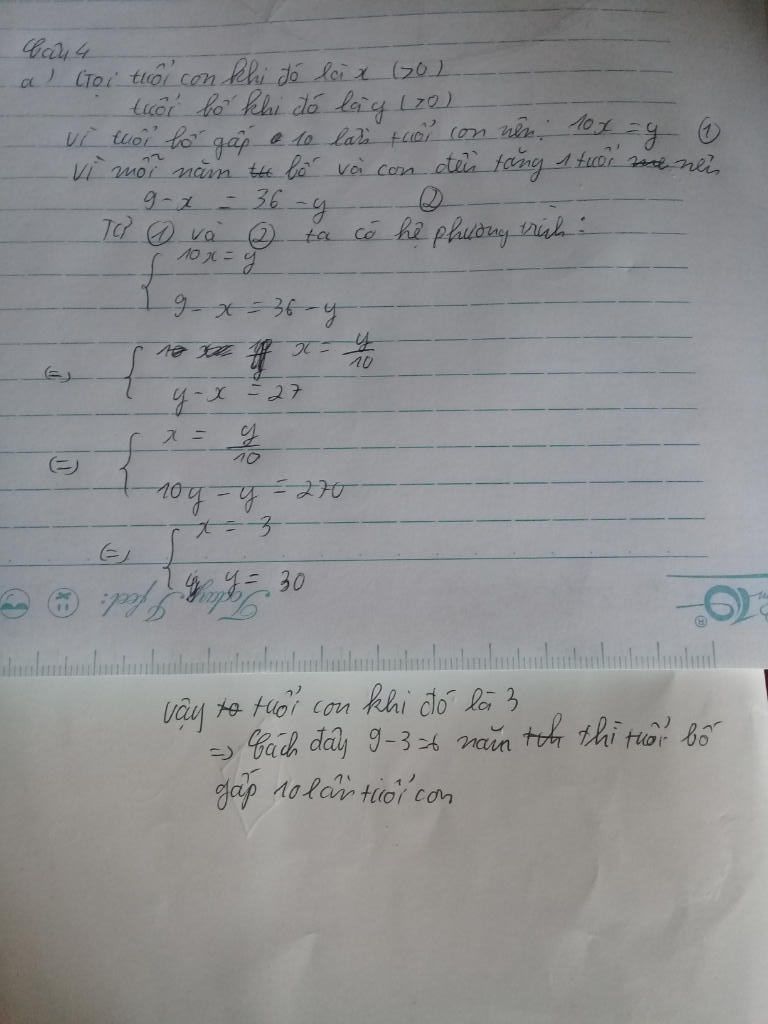 Câu 4
a) Gọi tuổi con khi đó là x (>0)
tuổi bố khi đó là y (>0)
vì tuổi bố gấp 10 lần tuổi con nên: 10x = y ①
vì mỗi năm bố và con đều tăng 1 tuổi nên
9 - x = 36 - y ②
Từ ① và ② ta có hệ phương trình:
10x = y
9 - x = 36 - y
(=) x = y/10
y - x = 27
(=) x = y/10
10y - y = 270
(=) x = 3
y = 30
Today I feel:
vậy tuổi con khi đó là 3
=> Cách đây 9-3=6 năm thì tuổi bố
gấp 10 lần tuổi con